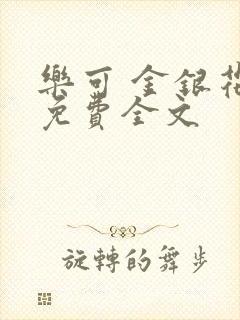 樂可 金銀花
免費全文
旋轉的舞步